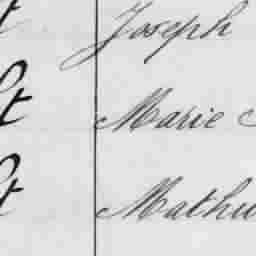 t Joseph
t Marie
t Mathu